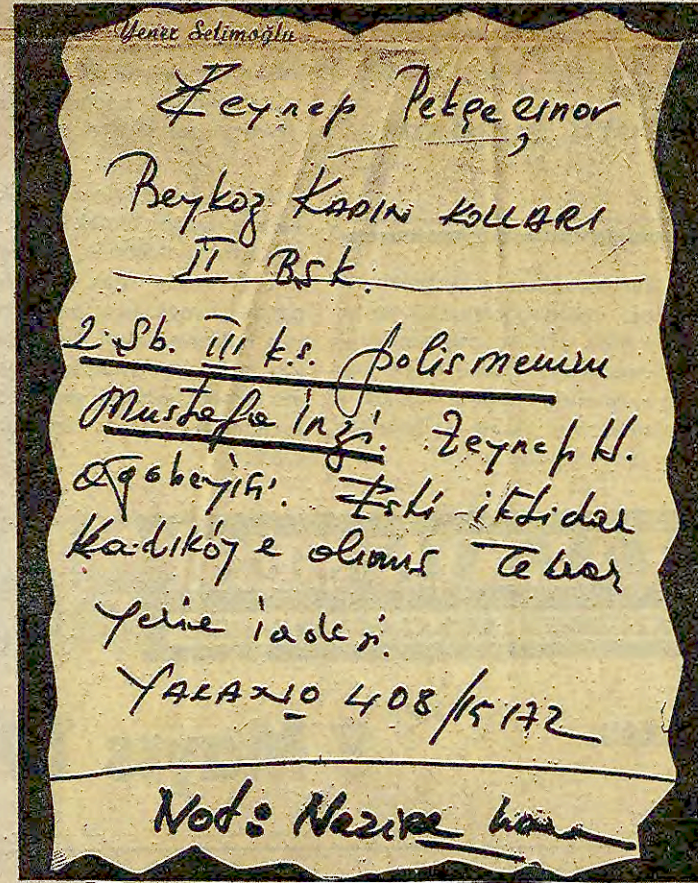 Yener Selimoğlu
Zeynep
Beykoz KADIN KOLLARI
II BŞK.
2. Şb. III ks. polis memuru
Mustafa İnzi. Zeynep H.
ağabeyisi. Eski iktidar
Kadıköy'e almış Tekrar
yerine iadesi.
YAKA NO 408/15172
Not: Nazire hanım